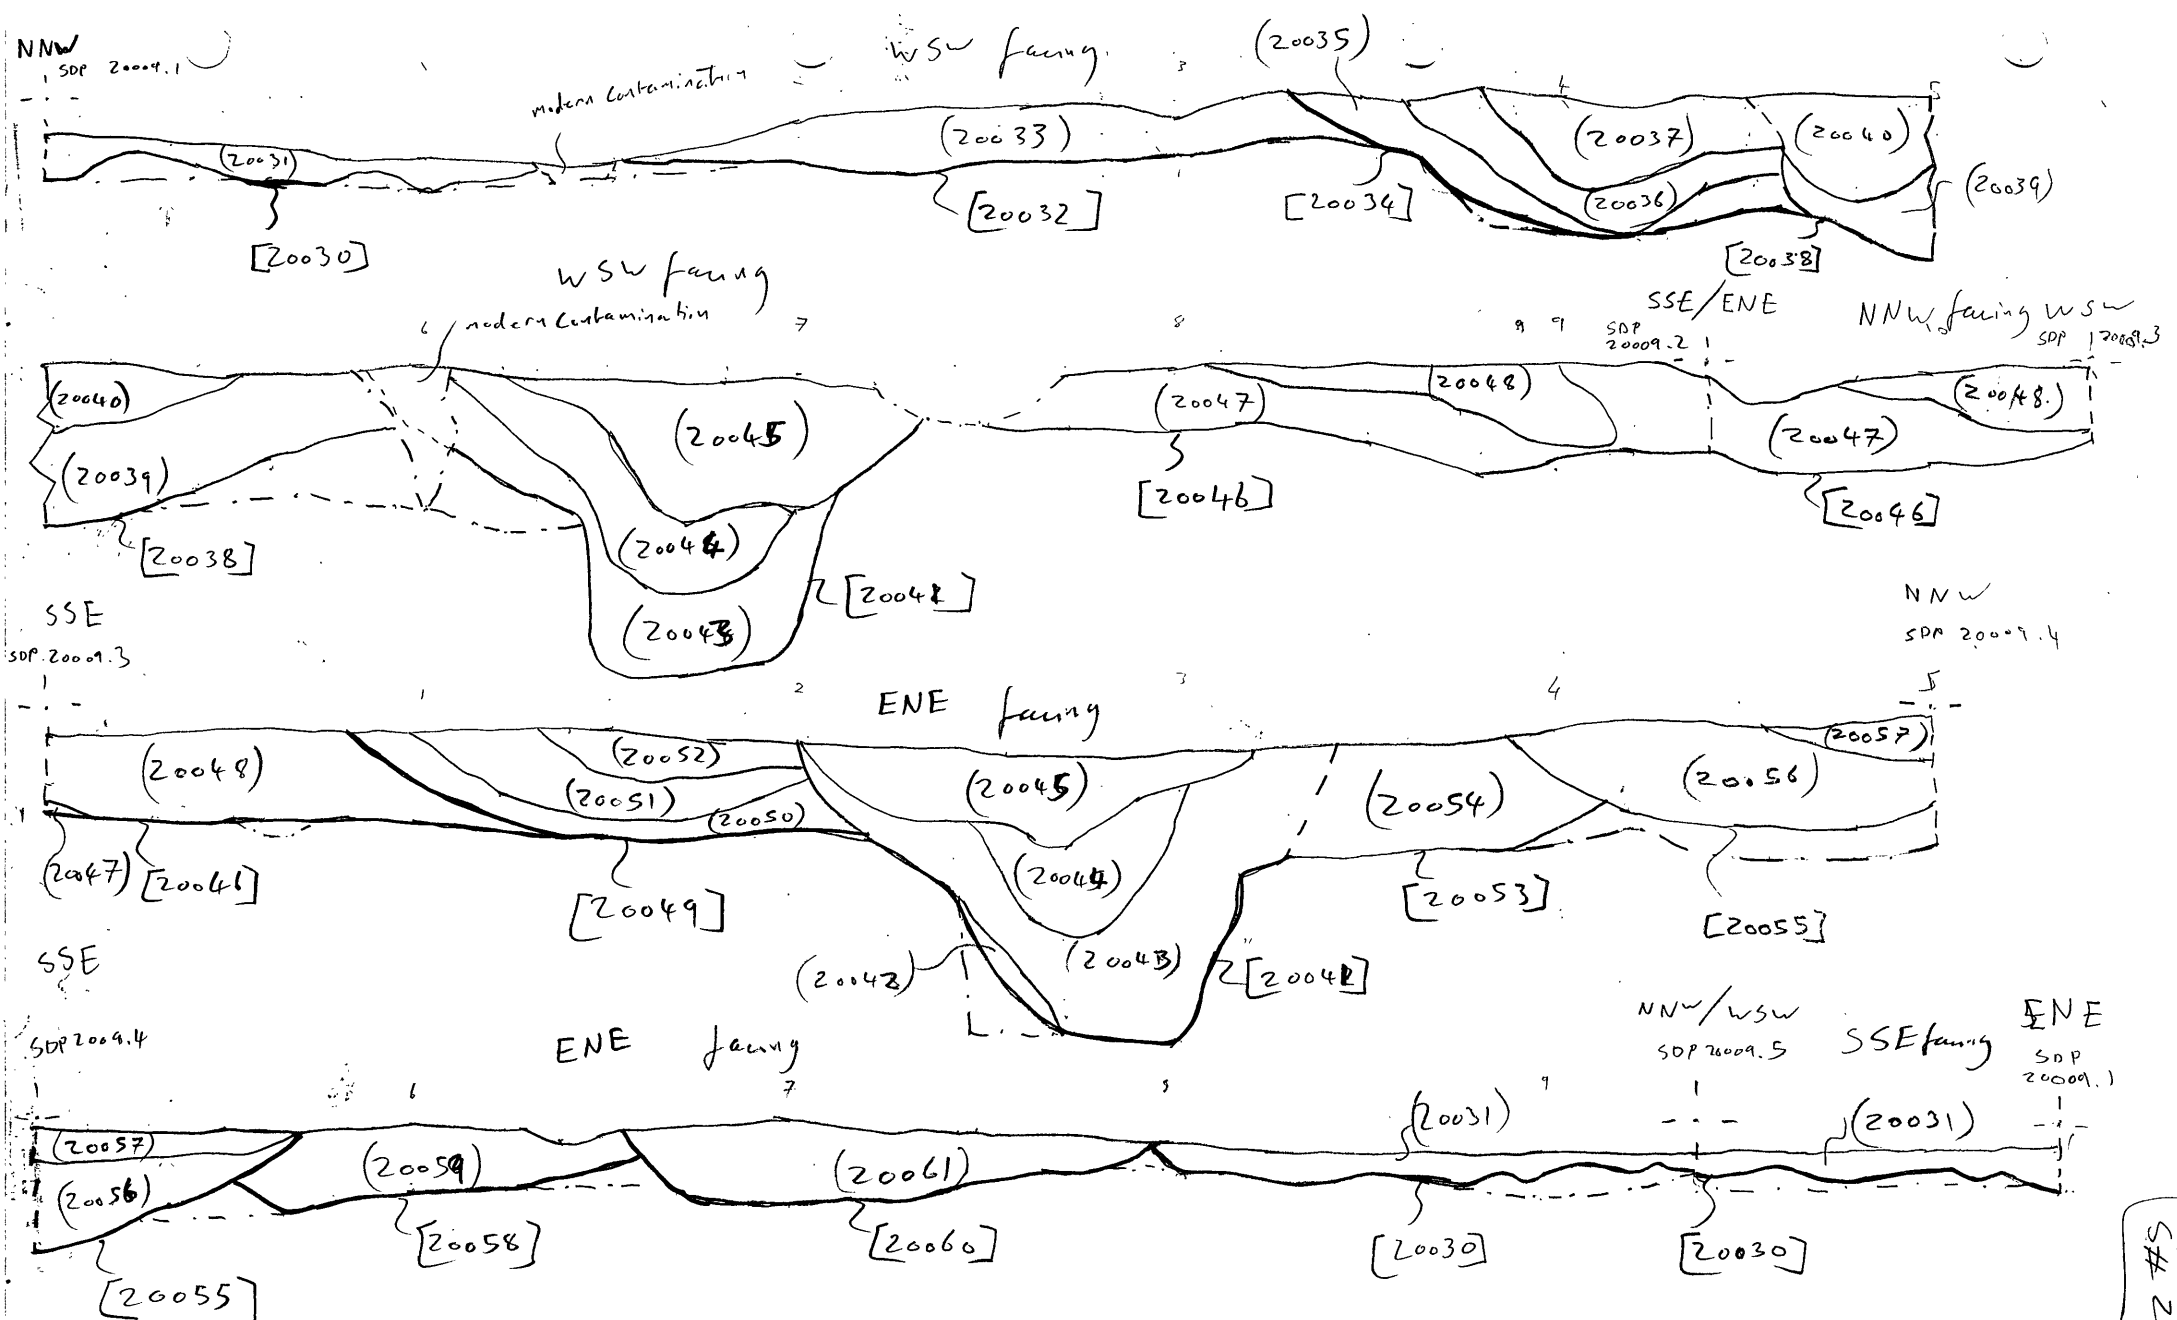 NNW
SDP 20009.1
modern contamination
WSW facing.
(20035)
3
4
5
(20031)
(20033)
(20037)
(20040)
(20036)
(20039)
[20030]
[20032]
[20034]
[20038]
WSW facing
6
modern contamination
7
8
9
9
SSE/ENE
SDP
20009.2
NNW facing WSW
SDP 20009.3
(20040)
(20039)
(20045)
(20047)
(20048)
(20047)
(20048.)
[20038]
(20044)
(20043)
[20041]
[20046]
[20046]
SSE
SDP.20009.3
1
2
ENE facing
3
4
NNW
SDP 20009.4
5
(20048)
(20052)
(20051)
(20050)
(20045)
(20054)
(20056)
(20057)
(20047)
[20046]
[20049]
(20044)
[20053]
[20055]
(20042)
(20043)
[20041]
SSE
SDP 20009.4
ENE facing
6
7
8
9
NNW/WSW
SDP 20009.5
SSE facing
ENE
SDP
20009.1
(20057)
(20056)
(20059)
(20061)
(20031)
(20031)
[20055]
[20058]
[20060]
[20030]
[20030]
S# 2